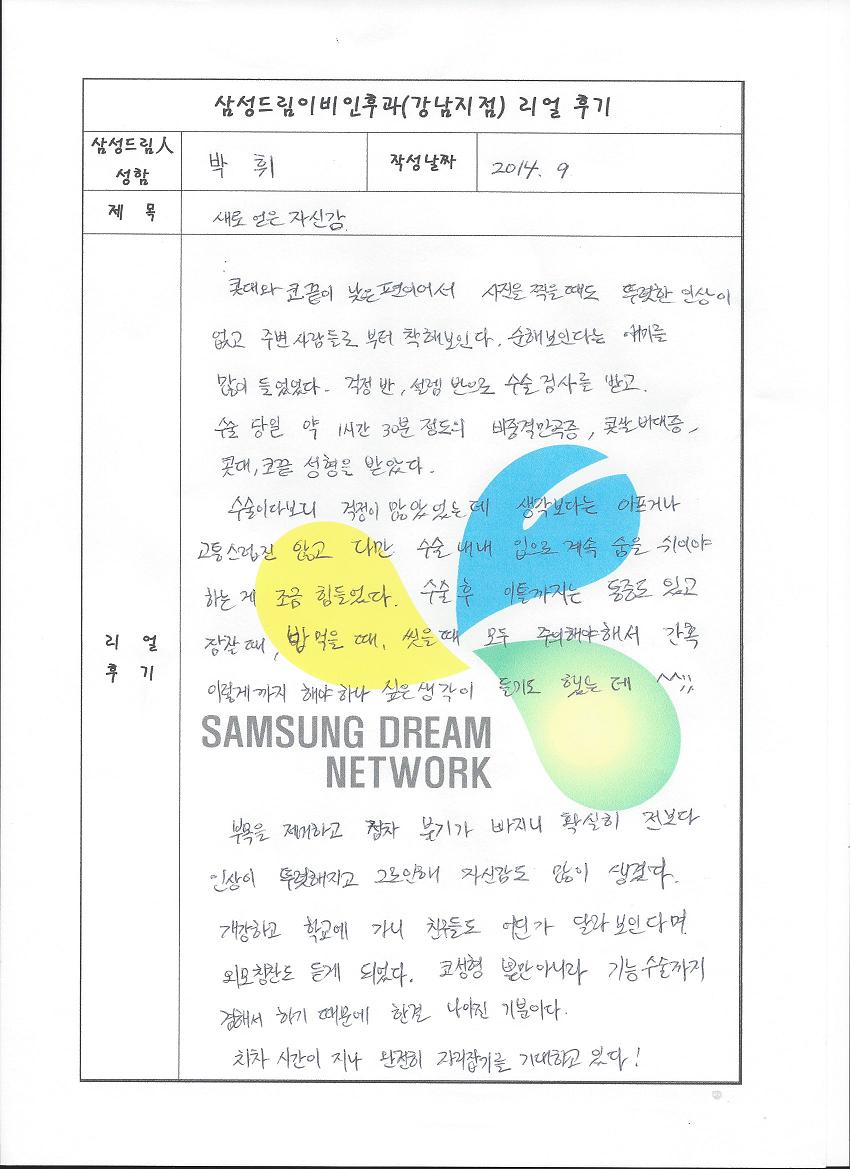 삼성드림이비인후과(강남지점) 리얼 후기
삼성드림人 성함
박 휘
작성날짜
2014. 9
제 목
새로 얻은 자신감
리 얼 후 기
콧대와 코끝이 낮은 편이어서 사진을 찍을때도 뚜렷한 인상이
없고 주변사람들로 부터 착해보인다. 순해보인다는 얘기를
많이 들었었다. 걱정 반, 설렘 반으로 수술 검사를 받고.
수술 당일 약 1시간 30분 정도의 비중격만곡증, 콧살비대증,
콧대, 코끝 성형을 받았다.
수술이다보니 걱정이 많았었는데 생각보다는 아프거나
고통스럽진 않고 다만 수술 내내 입으로 계속 숨을 쉬어야
하는 게 조금 힘들었다. 수술 후 이틀까지는 통증도 있고
잠잘 때, 밥 먹을 때, 씻을 때 모두 주의해야해서 간혹
이렇게까지 해야하나 싶은 생각이 들기도 했는 데 ^^;;
SAMSUNG DREAM
NETWORK
부목을 제거하고 점차 붓기가 빠지니 확실히 전보다
인상이 뚜렷해지고 그로인해 자신감도 많이 생겼다.
개강하고 학교에 가니 친구들도 어딘가 달라보인다며
외모칭찬도 듣게 되었다. 코성형 뿐만아니라 기능수술까지
겸해서 하기 때문에 한결 나아진 기분이다.
차차 시간이 지나 완전히 자리잡기를 기대하고 있다!